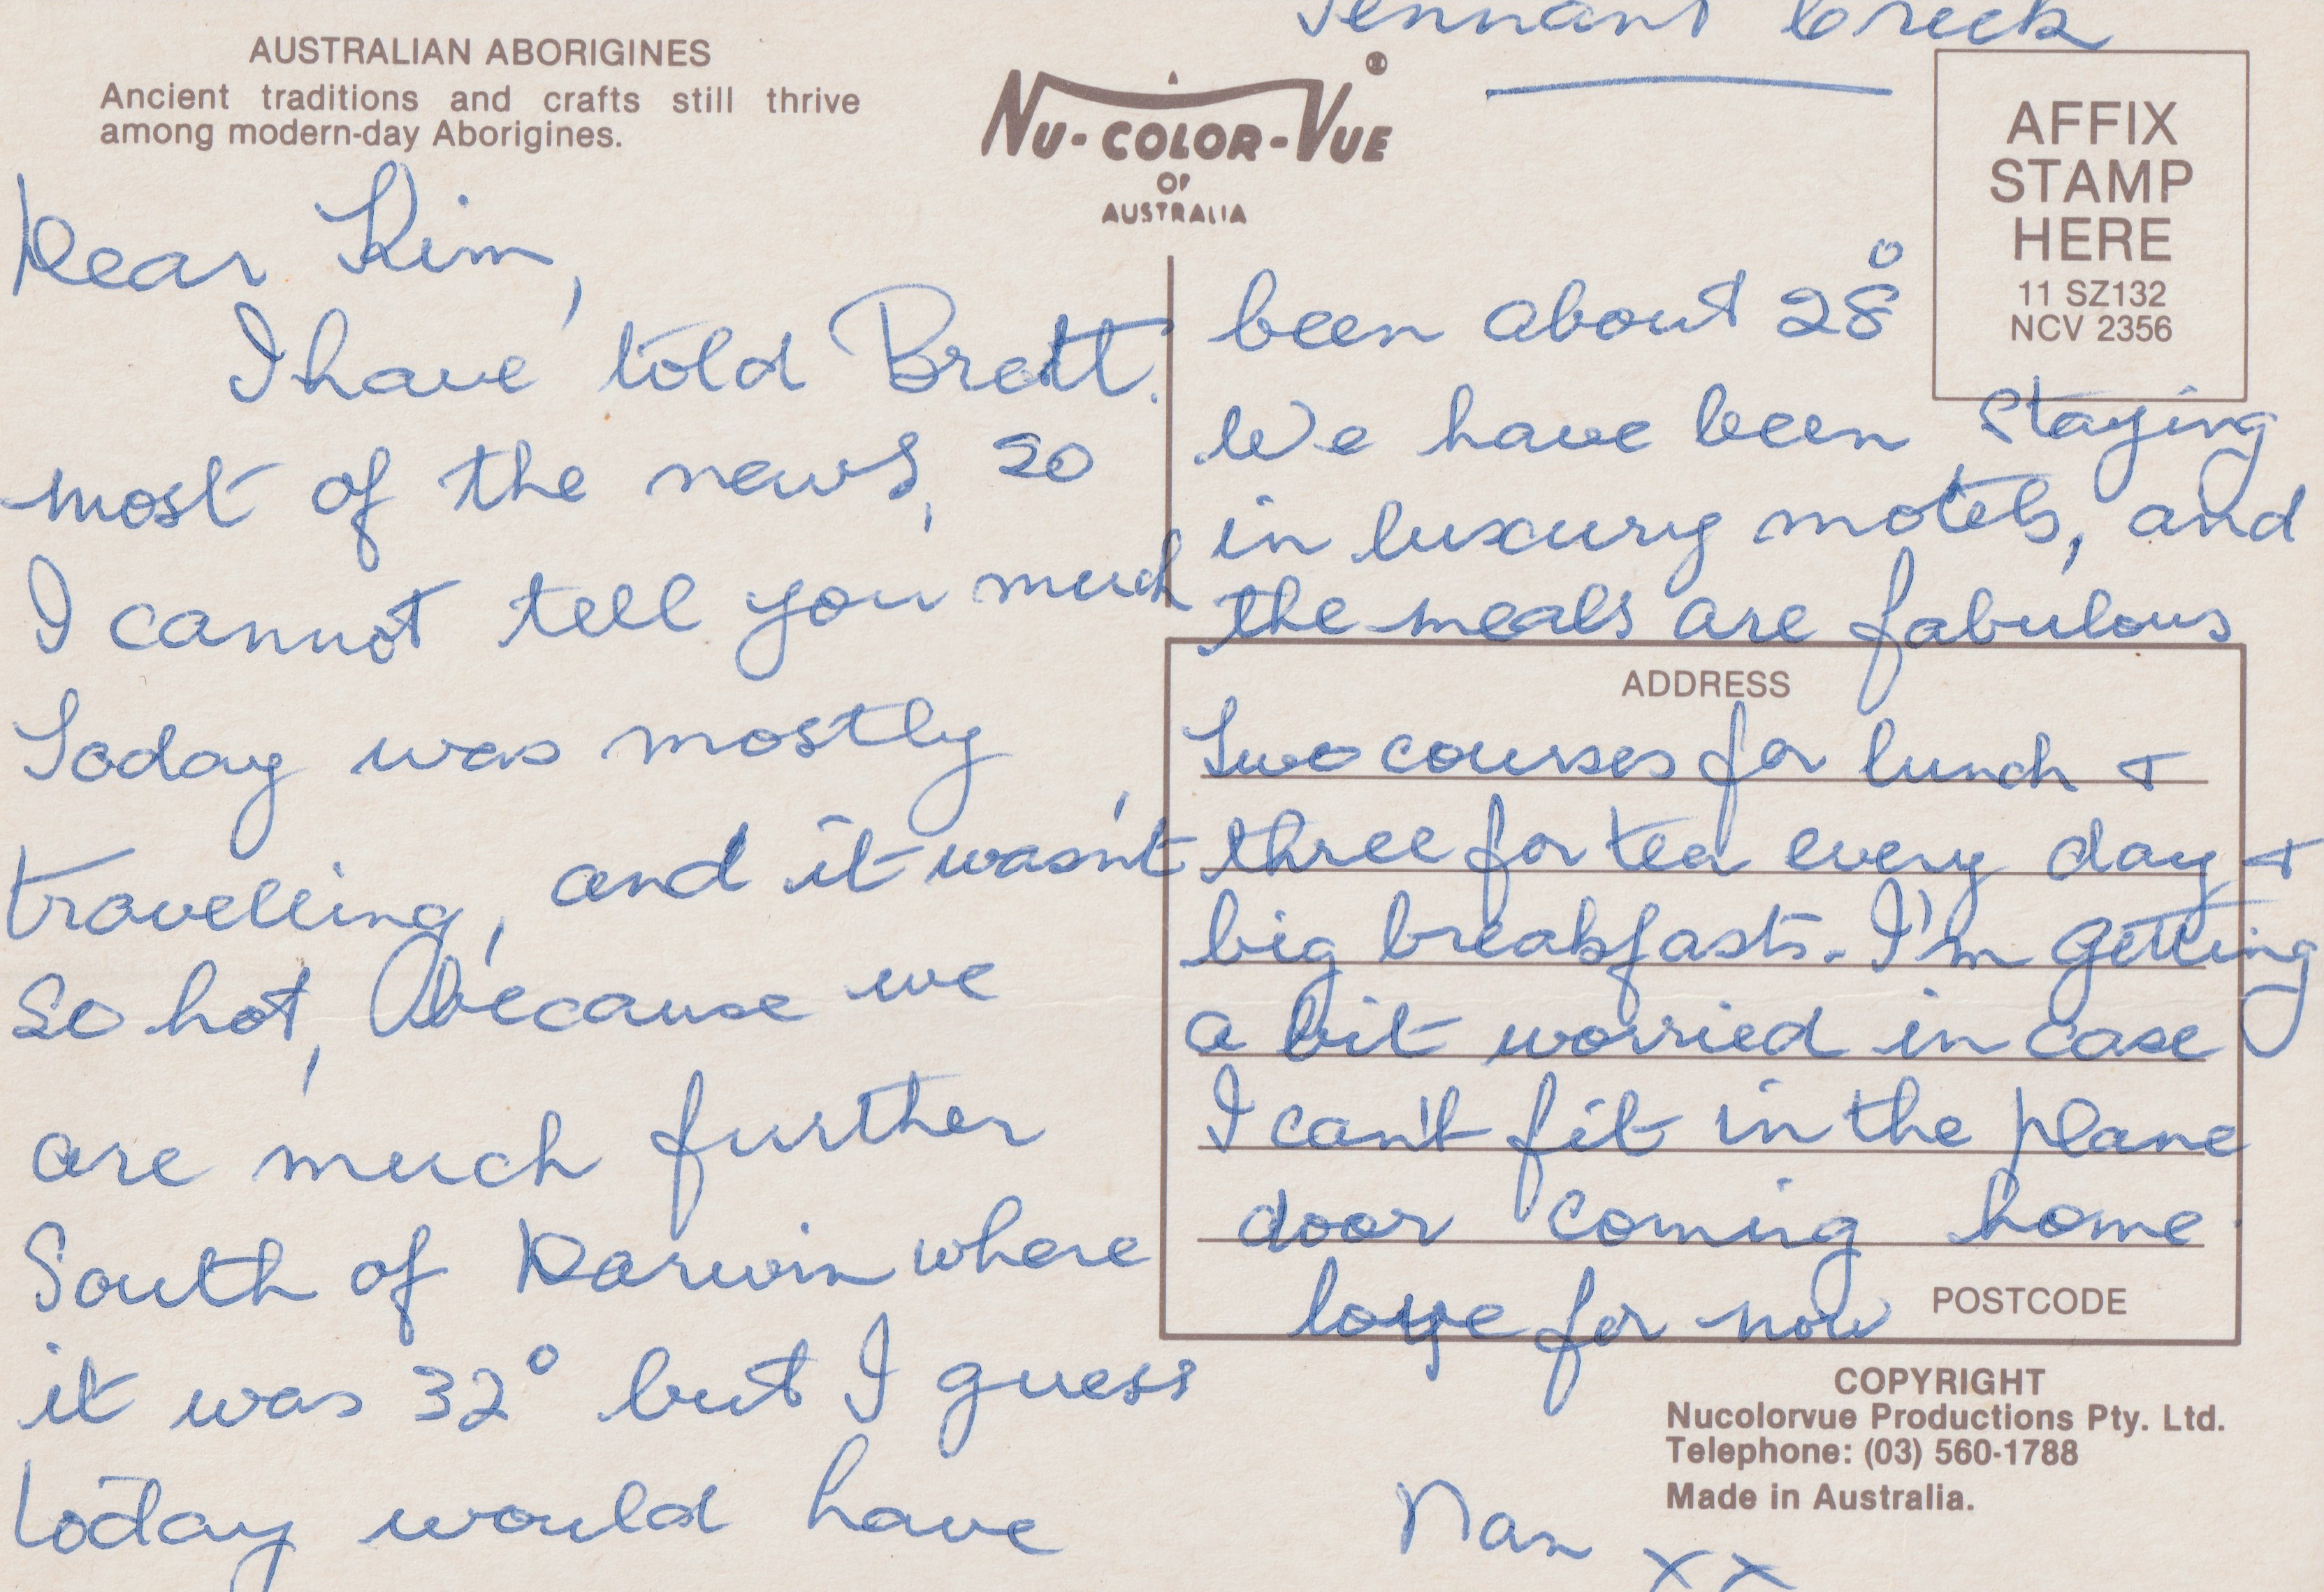 Tennant Creek
AUSTRALIAN ABORIGINES
Ancient traditions and crafts still thrive
among modern-day Aborigines.
NU-COLOR-VUE
OF
AUSTRALIA
AFFIX
STAMP
HERE
11 SZ132
NCV 2356
Dear Kim,
I have told Brett.
most of the news, so
I cannot tell you much
Today was mostly
travelling, and it wasn't
so hot, because we
are much further
South of Darwin where
it was 32° but I guess
today would have
been about 28°
We have been staying
in luxury motels, and
the meals are fabulous
ADDRESS
Two courses for lunch +
three for tea every day +
big breakfasts. I'm getting
a bit worried in case
I can't fit in the plane
door coming home.
love for now
POSTCODE
Nan xx
COPYRIGHT
Nucolorvue Productions Pty. Ltd.
Telephone: (03) 560-1788
Made in Australia.